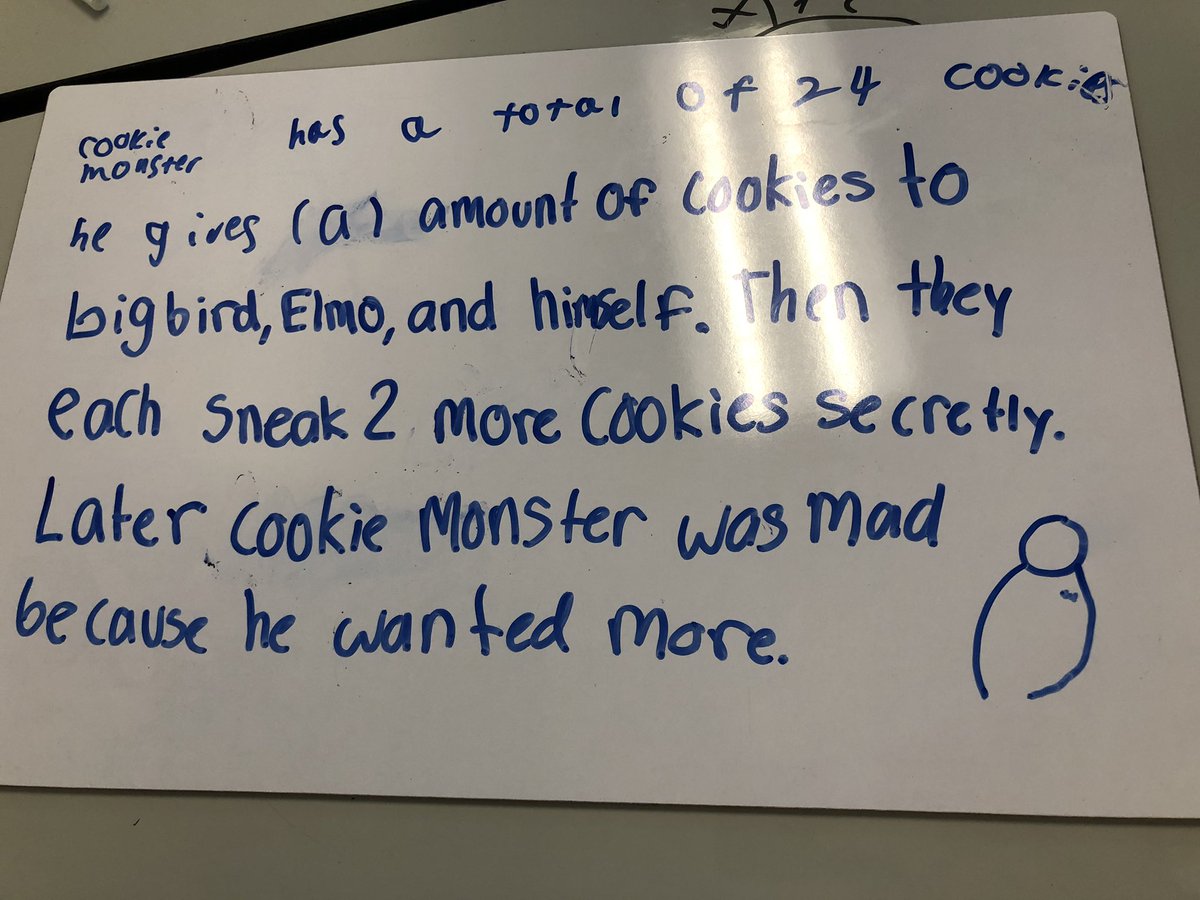 cookie monster has a total of 24 cookies
he gives (a) amount of cookies to
bigbird, Elmo, and himself. Then they
each sneak 2 more cookies secretly.
Later cookie monster was mad
because he wanted more.